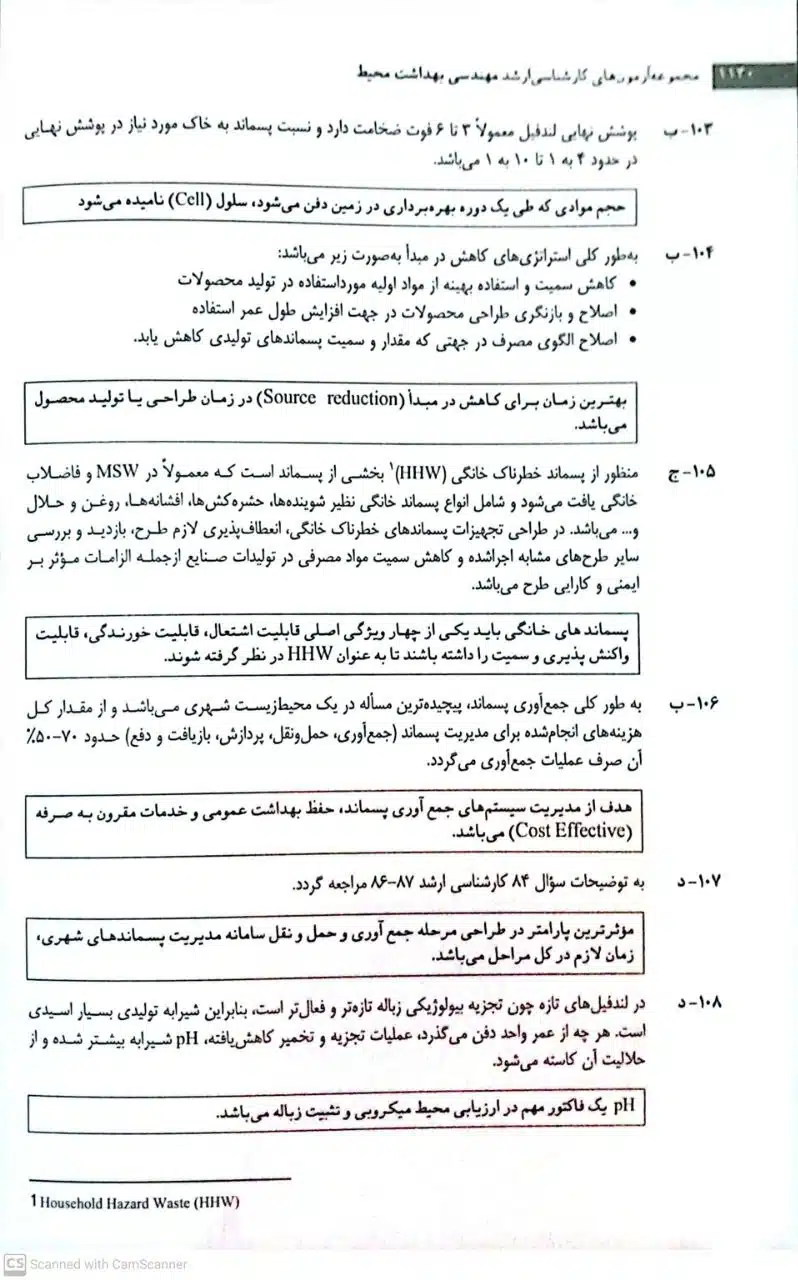 ۱۱۴۰ مجموعه آزمون‌های کارشناسی ارشد مهندسی بهداشت محیط
۱۰۳-ب پوشش نهایی لندفیل معمولاً ۳ تا ۶ فوت ضخامت دارد و نسبت پسماند به خاک مورد نیاز در پوشش نهایی
در حدود ۴ به ۱ تا ۱۰ به ۱ می‌باشد.
حجم موادی که طی یک دوره بهره‌برداری در زمین دفن می‌شود، سلول (Cell) نامیده می‌شود
۱۰۴-ب به‌طور کلی استراتژی‌های کاهش در مبدأ به‌صورت زیر می‌باشد:
• کاهش سمیت و استفاده بهینه از مواد اولیه مورداستفاده در تولید محصولات
• اصلاح و بازنگری طراحی محصولات در جهت افزایش طول عمر استفاده
• اصلاح الگوی مصرف در جهتی که مقدار و سمیت پسماندهای تولیدی کاهش یابد.
بهترین زمان برای کاهش در مبدأ (Source reduction) در زمان طراحی یا تولید محصول
می‌باشد.
۱۰۵-ج منظور از پسماند خطرناک خانگی (HHW)¹ بخشی از پسماند است که معمولاً در MSW و فاضلاب
خانگی یافت می‌شود و شامل انواع پسماند خانگی نظیر شوینده‌ها، حشره‌کش‌ها، افشانه‌ها، روغن و حلال
و... می‌باشد. در طراحی تجهیزات پسماندهای خطرناک خانگی، انعطاف‌پذیری لازم طرح، بازدید و بررسی
سایر طرح‌های مشابه اجراشده و کاهش سمیت مواد مصرفی در تولیدات صنایع ازجمله الزامات مؤثر بر
ایمنی و کارایی طرح می‌باشد.
پسماند های خانگی باید یکی از چهار ویژگی اصلی قابلیت اشتعال، قابلیت خورندگی، قابلیت
واکنش پذیری و سمیت را داشته باشند تا به عنوان HHW در نظر گرفته شوند.
۱۰۶-ب به طور کلی جمع‌آوری پسماند، پیچیده‌ترین مسأله در یک محیط‌زیست شهری می‌باشد و از مقدار کل
هزینه‌های انجام‌شده برای مدیریت پسماند (جمع‌آوری، حمل‌ونقل، پردازش، بازیافت و دفع) حدود ۷۰-۵۰٪
آن صرف عملیات جمع‌آوری می‌گردد.
هدف از مدیریت سیستم‌های جمع آوری پسماند، حفظ بهداشت عمومی و خدمات مقرون به صرفه
(Cost Effective) می‌باشد.
۱۰۷-د به توضیحات سؤال ۸۴ کارشناسی ارشد ۸۷-۸۶ مراجعه گردد.
مؤثرترین پارامتر در طراحی مرحله جمع آوری و حمل و نقل سامانه مدیریت پسماندهای شهری،
زمان لازم در کل مراحل می‌باشد.
۱۰۸-د در لندفیل‌های تازه چون تجزیه بیولوژیکی زباله تازه‌تر و فعال‌تر است، بنابراین شیرابه تولیدی بسیار اسیدی
است. هر چه از عمر واحد دفن می‌گذرد، عملیات تجزیه و تخمیر کاهش‌یافته، pH شیرابه بیشتر شده و از
حلالیت آن کاسته می‌شود.
pH یک فاکتور مهم در ارزیابی محیط میکروبی و تثبیت زباله می‌باشد.
1 Household Hazard Waste (HHW)
CS Scanned with CamScanner